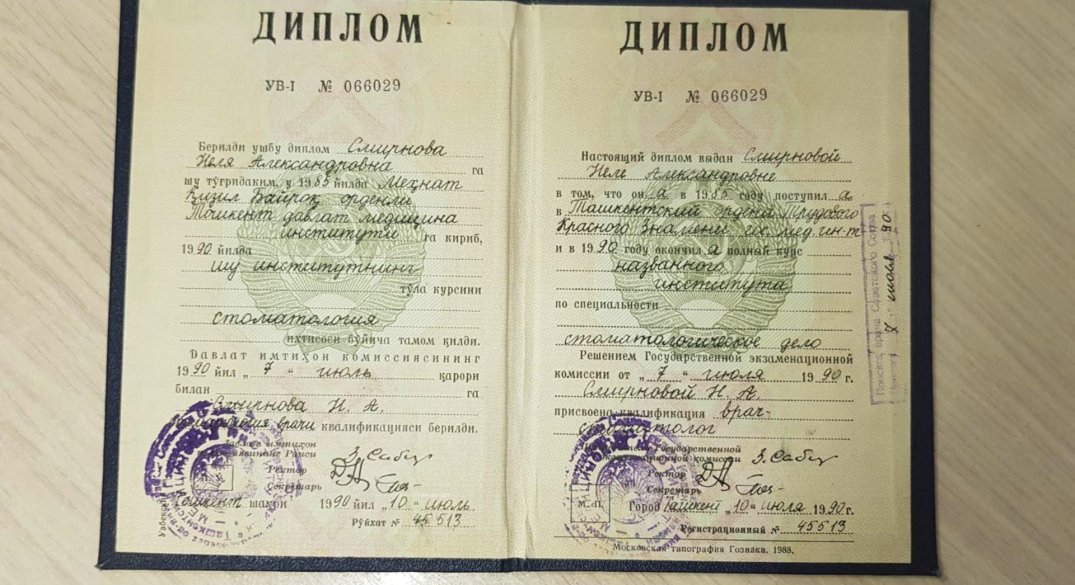 ДИПЛОМ
УВ-I № 066029
Берилди ушбу диплом Смирнова
Неля Александровна га
шу тўғридаким, у 1985 йилда Меҳнат
Қизил Байроқ орденли
Тошкент давлат медицина
институти га кириб,
1990 йилда
шу институтнинг
тўла курсини
стоматология
ихтисоси бўйича тамом қилди.
Давлат имтиҳон комиссиясининг
1990 йил „ 7 “ июль қарори
билан га
Смирнова Н. А.
врачи квалификацияси берилди.
Давлат имтиҳон
Раиси
Ректор
Секретарь
Тошкент шаҳри 1990 йил „10“ июль
Рўйхат № 45513
ДИПЛОМ
УВ-I № 066029
Настоящий диплом выдан Смирновой
Неле Александровне
в том, что он а в 1985 году поступил а
в Ташкентский ордена Трудового
Красного Знамени гос. мед. ин-т
и в 1990 году окончил а полный курс
названного
института
по специальности
стоматологическое дело
Решением Государственной экзаменационной
комиссии от „ 7 “ июля 1990 г.
Смирновой Н. А.
присвоена квалификация врач-
стоматолог
Государственной
экзаменационной комиссии
Ректор
Секретарь
М. П. Город Ташкент „10“ июля 1990 г.
Регистрационный № 45513
Московская типография Гознака. 1988.
врача Советского Союза
7 июля 90